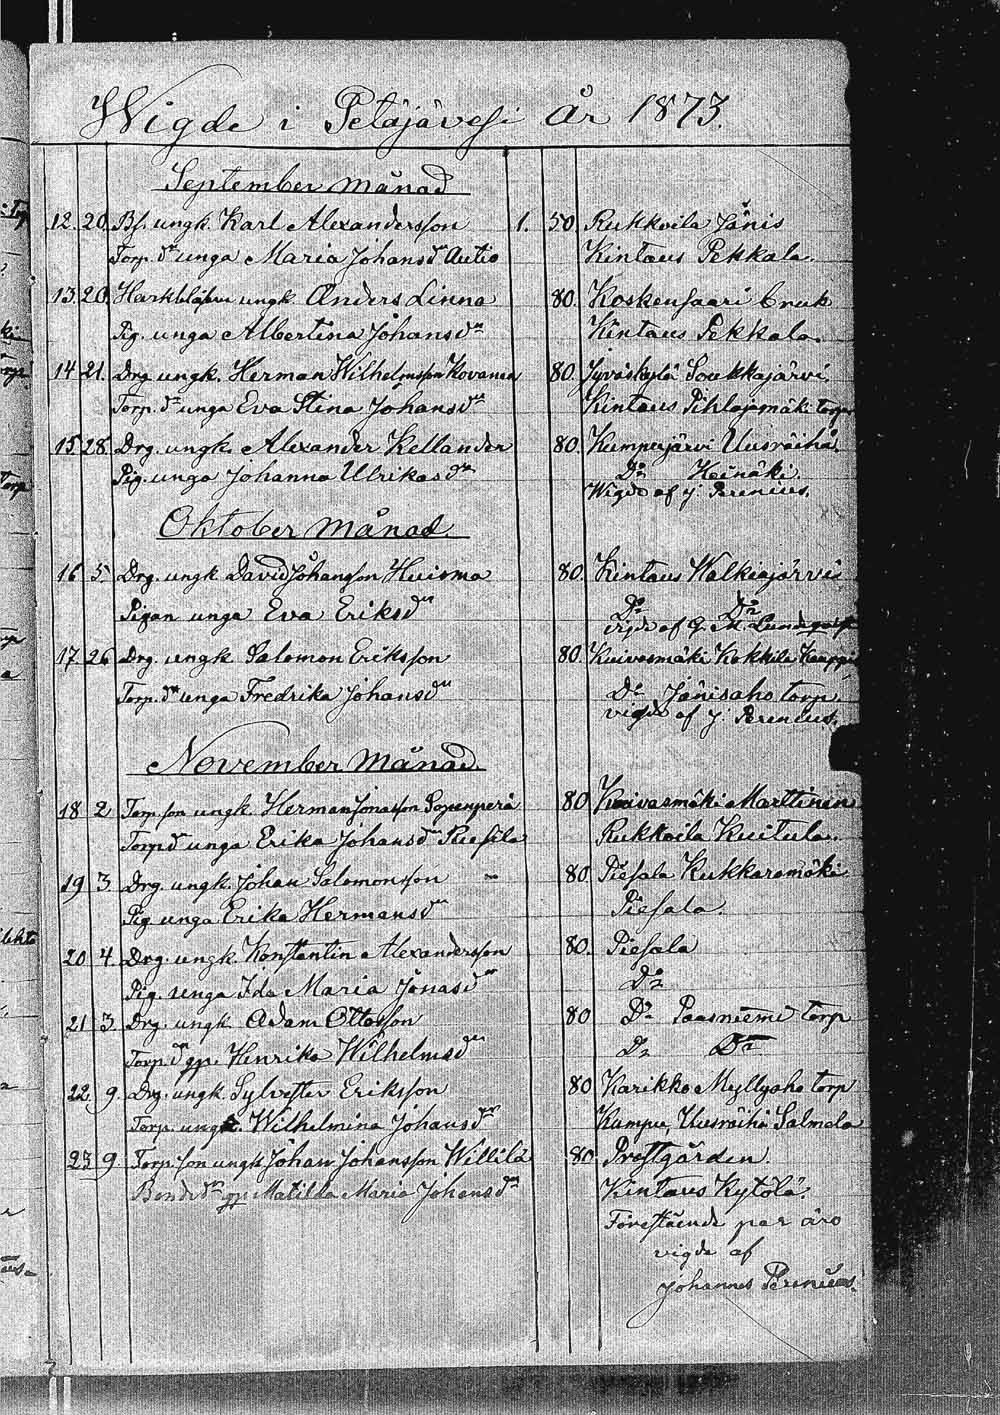 Wigde i Petäjävesi År 1873.
September månad
12. 20. Bs. ungk. Karl Alexandersson 1. 50. Rukkoila Jänis
Torp. dr. unga Maria Johansdr Autio Kintaus Pekkala.
13. 20. ungk. Anders Linna 80. Koskensaari bruk
Pig. unga Albertina Johansdr Kintaus Pekkala.
14 21. Drg. ungk. Herman Wilhelmsson Kovanen 80. Jyväskylä Soukkajärvi.
Torp. dr unga Eva Stina Johansdr Kintaus Pihlajamäki torp
15. 28. Drg. ungk. Alexander Kellander 80. Kumpujärvi Uusräihä.
Pig. unga Johanna Ulrikasdr Do Heinäki.
Wigde af J. Perenius.
Oktober månad.
16 5. Drg. ungk David Johansson Huisma 80. Kintaus Walkeajärvi
Pigan unga Eva Eriksdr Do Do
vigde af G. M.
17. 26 Drg. ungk. Salomon Eriksson 80. Kuivasmäki Kokkila Kauppi
Torp. dr unga Fredrika Johansdr Do Jänisaho torp
vigde af J. Perenius.
November månad.
18 2. Torp. son ungk. Herman Jonasson Sopenperä 80 Kuivasmäki Marttinen
Torp. dr unga Erika Johansdr Piesala Rukkoila Kuitula.
19 3 Drg. ungk. Johan Salomonsson 80. Piesala Kukkaromäki
Pig unga Erika Hermansdr Piesala.
20 4. Drg. ungk. Konstantin Alexandersson 80. Piesala
Pig. unga Ida Maria Jonasdr Do
21 3 Drg. ungk. Adam Ottosson 80 Do Paasniemi torp
Torp. dr gp. Henrika Wilhelmsdr Do Do
22. 9. Drg. ungk. Sylvester Eriksson 80 Karikko Myllyaho torp
Torp. unga. Wilhelmina Johansdr Kumpu, Uusräihä Salmela
23 9. Torp. son ungk. Johan Johansson Willilä 80. Prestgården.
Bonde dr gp Matilda Maria Johansdr Kintaus Kytölä.
Förestående par äro
vigde af
Johannes Perenius.